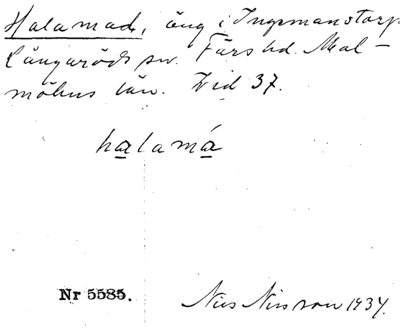 Halamad, äng i Ingemanstorp
Långaröds sn. Färs hd. Mal-
möhus län. Vid 37.
halamá
Nr 5585.
Nils Nilsson 1934.